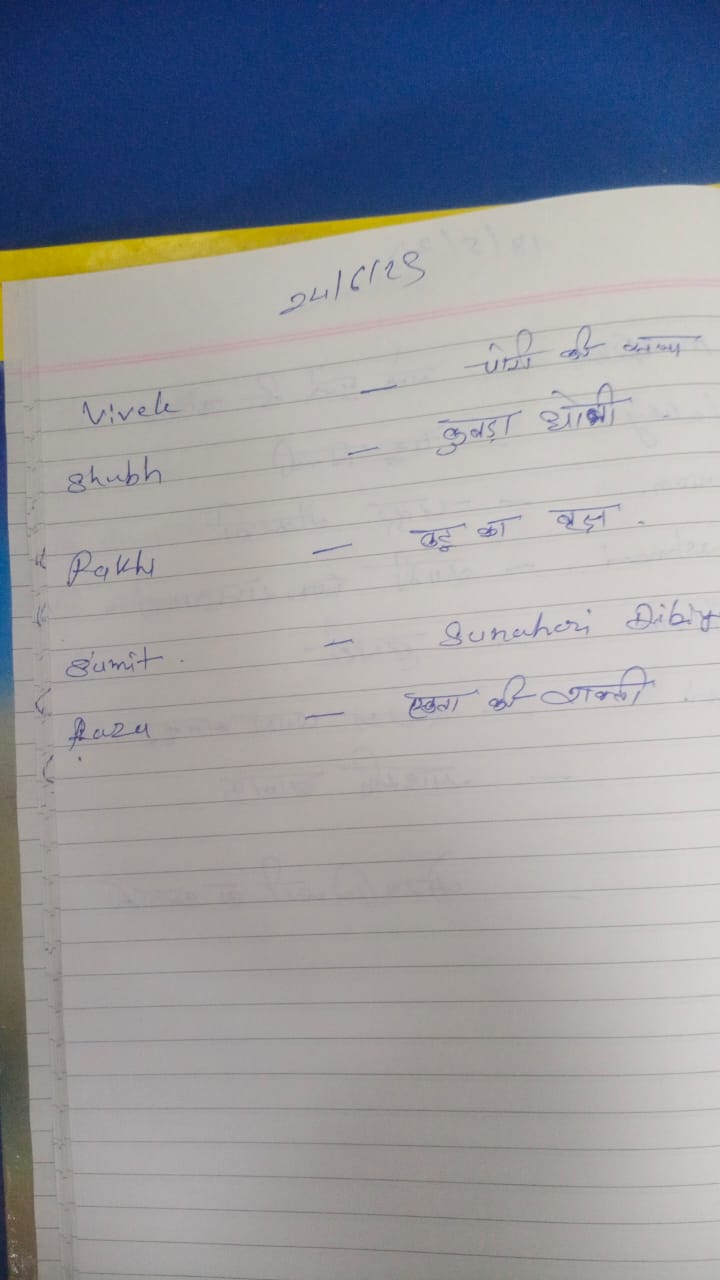 24/6/25
Vivek — चोरी की
Shubh — कुबड़ा धोबी
Rakhi — कद्दू का वृक्ष.
Sumit. — Sunaheri Dibiy
Razu — एकता की शक्ती